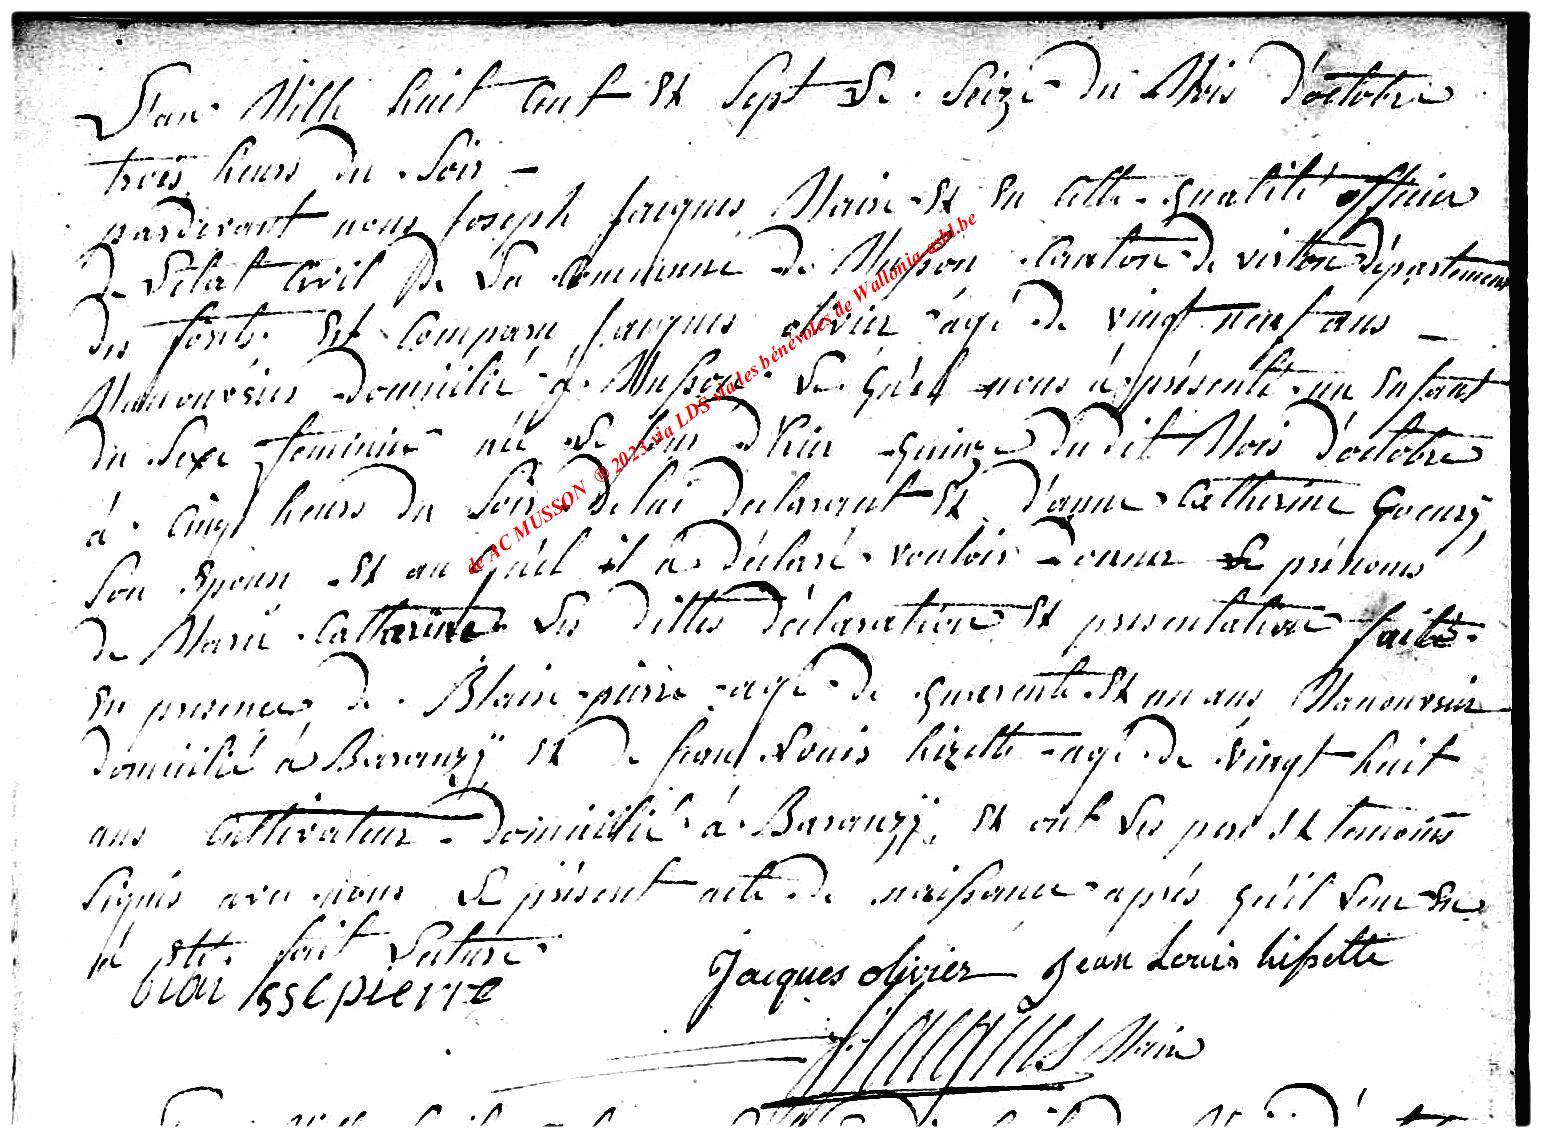 L'an Mille huit Cent Et Sept Le Seize du Mois d'octobre
trois heurs du Soir —
pardevant nous Joseph Jacques Maire Et En Cette qualité officier
de L'Etat Civil de La Commune de Musson Canton de virton département
des forêts Est Comparu Jacques olivier agé de vingt neuf ans —
Manouvrier domicilié à Musson Le quel nous à présenté un Enfant
du Sexe feminin née Le jour d'hier quinze du dit Mois d'octobre
à Cinq heurs du Soir de lui declarant Et d'anne Catherine Goeury,
Son Epouse Et au quel il à déclaré vouloir donner Le prénoms
de Marie Catherine Les dittes déclaration Et presentation faite
En presence de Blaise pierre agé de quarente Et un ans Manouvrier
domicilié à Baranzÿ Et de Jean Louis hizette agé de vingt huit
ans Cultivateur domicilié à Baranzÿ, Et ont Les pere Et temoins
Signés avec nous Le présent acte de naissance après qu'il Leur En
à Eté fait Lecture
pierre Jacques olivier Jean Louis hissette
Jacques Maire
de AC MUSSON ® 2023 via LDS via des bénévoles de Wallonia-asbl.be